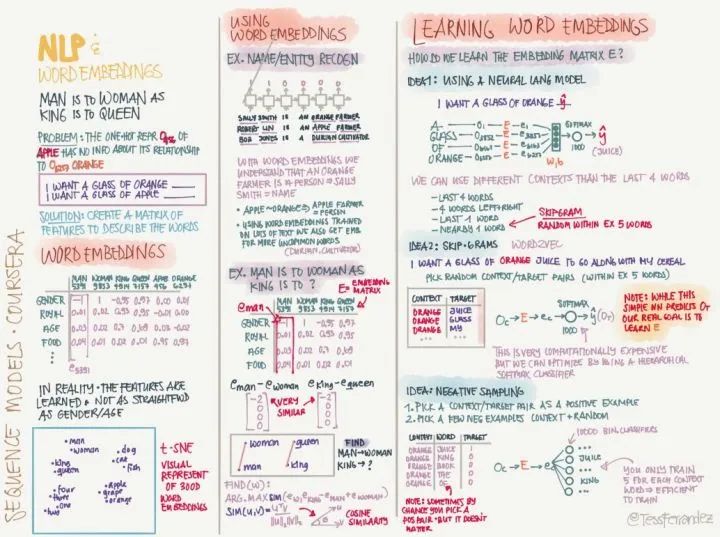 SEQUENCE MODELS • COURSERA
NLP &
WORD EMBEDDINGS
MAN IS TO WOMAN AS
KING IS TO QUEEN
PROBLEM: THE ONE-HOT REPR OF
APPLE HAS NO INFO ABOUT ITS RELATIONSHIP
TO O6257 ORANGE
I WANT A GLASS OF ORANGE ____
I WANT A GLASS OF APPLE ____
SOLUTION: CREATE A MATRIX OF
FEATURES TO DESCRIBE THE WORDS
WORD EMBEDDINGS
MAN WOMAN KING QUEEN APPLE ORANGE
5391 9853 4914 7157 456 6257
GENDER -1 1 -0.95 0.97 0.00 0.01
ROYAL 0.01 0.02 0.93 0.95 -0.01 0.00
AGE 0.03 0.02 0.7 0.69 0.03 -0.02
FOOD 0.04 0.01 0.02 0.01 0.95 0.97
e5391
IN REALITY • THE FEATURES ARE
LEARNED & NOT AS STRAIGHTFWD
AS GENDER/AGE
man
woman
dog
king
cat
queen
fish
four
Apple
three
grape
one
orange
two
t-SNE
VISUAL
REPRESENT
OF 300D
WORD
EMBEDDINGS
USING
WORD EMBEDDINGS
EX. NAME/ENTITY RECOGN
1 1 0 0 0 0
SALLY SMITH IS AN ORANGE FARMER
ROBERT LIN IS AN APPLE FARMER
BOB JONES IS A DURIAN CULTIVATOR
WITH WORD EMBEDDINGS WE
UNDERSTAND THAT AN ORANGE
FARMER IS A PERSON ⇒ SALLY
SMITH = NAME
• APPLE ~ ORANGE ⇒ APPLE FARMER
= PERSON
• USING WORD EMBEDDINGS TRAINED
ON LOTS OF TEXT WE ALSO GET EMB
FOR MORE UNCOMMON WORDS
(DURIAN, CULTIVATOR)
EX. MAN IS TO WOMAN AS
KING IS TO ?
E= EMBEDDING
MATRIX
eman
MAN WOMAN KING QUEEN
5391 9853 4914 7157
GENDER -1 1 -0.95 0.97
ROYAL 0.01 0.02 0.93 0.95
AGE 0.03 0.02 0.7 0.69
FOOD 0.04 0.01 0.02 0.01
eman - ewoman eking - equeen
-2 0 0 0
VERY
SIMILAR
-2 0 0 0
woman
queen
man
king
FIND
MAN→WOMAN
KING → ?
FIND(W):
ARG.MAX SIM(ew, eking - eman + ewoman)
SIM(u,v) = uTv / ||u||2||v||2
COSINE
SIMILARITY
LEARNING WORD EMBEDDINGS
HOW DO WE LEARN THE EMBEDDING MATRIX E?
IDEA 1: USING A NEURAL LANG MODEL
I WANT A GLASS OF ORANGE ŷ
A
GLASS
OF
ORANGE
E
w,b
SOFTMAX
ŷ
(JUICE)
WE CAN USE DIFFERENT CONTEXTS THAN THE LAST 4 WORDS
- LAST 4 WORDS
- 4 WORDS LEFT/RIGHT
- LAST 1 WORD
- NEARBY 1 WORD
SKIPGRAM
RANDOM WITHIN EX 5 WORDS
IDEA 2: SKIP-GRAMS WORD2VEC
I WANT A GLASS OF ORANGE JUICE TO GO ALONG WITH MY CEREAL
PICK RANDOM CONTEXT/TARGET PAIRS (WITHIN EX 5 WORDS)
CONTEXT TARGET
ORANGE JUICE
ORANGE GLASS
ORANGE MY
Oc → E → ec → ŷ (Ot)
SOFTMAX
NOTE: WHILE THIS
SIMPLE NN PREDICTS Ot
OUR REAL GOAL IS TO
LEARN E
THIS IS VERY COMPUTATIONALLY EXPENSIVE
BUT WE CAN OPTIMIZE BY USING A HIERARCHICAL
SOFTMAX CLASSIFIER
IDEA: NEGATIVE SAMPLING
1. PICK A CONTEXT/TARGET PAIR AS A POSITIVE EXAMPLE
2. PICK A FEW NEG EXAMPLES CONTEXT + RANDOM
CONTEXT WORD TARGET
ORANGE JUICE 1
ORANGE KING 0
ORANGE BOOK 0
ORANGE THE 0
ORANGE OF 0
NOTE: SOMETIMES BY
CHANCE YOU PICK A
POS PAIR • BUT IT DOESN'T
MATTER
Oc → E → e
10000 BIN. CLASSIFIERS
JUICE
KING
YOU ONLY TRAIN
5 FOR EACH CONTEXT
WORD ⇒ EFFICIENT
TO TRAIN
@TessFerrandez